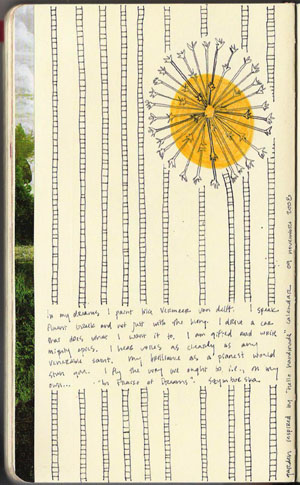 in my dreams I paint like vermeer van delft. I speak
fluent Greek and not just with the living. I drive a car
that does what I want it to. I am gifted and write
mighty epics. I hear voices as clearly as any
venerable saint. my brilliance as a pianist would
stun you. I fly the way we ought to, i.e., on my
own... "In Praise of Dreams". Szymborska.
garden inspired by "hello handmade" calendar. 09 november 2008